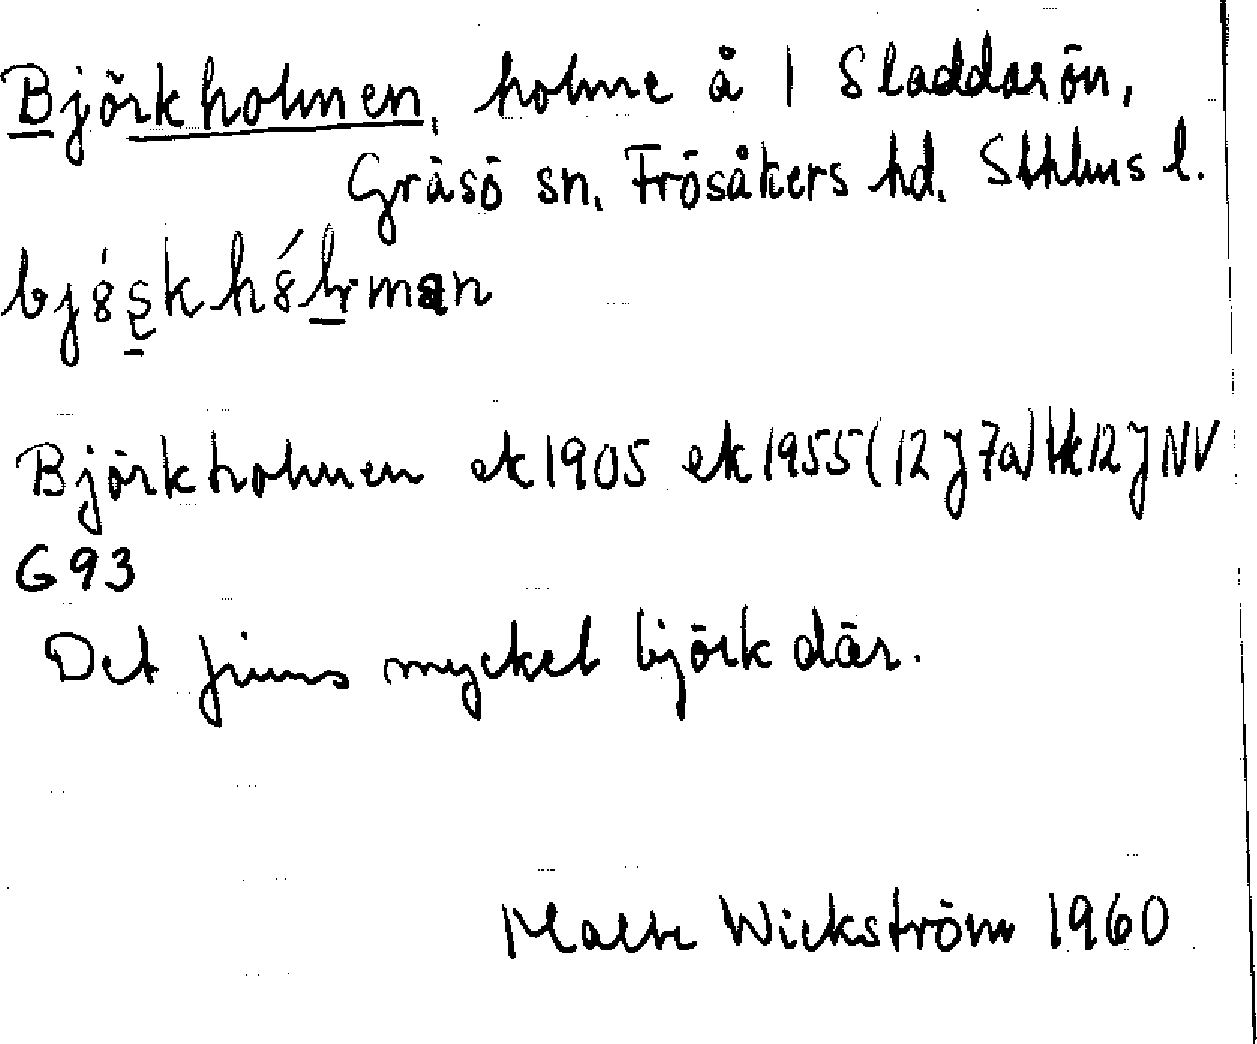 Björkholmen, holme å 1 Sladdarön,
Gräsö sn, Frösåkers hd. Sthlms l.
Björkholmen ek 1905 ek 1955 (12 J 7a) tk 12 J NV
G 93
Det finns mycket björk där.
Malte Wickström 1960